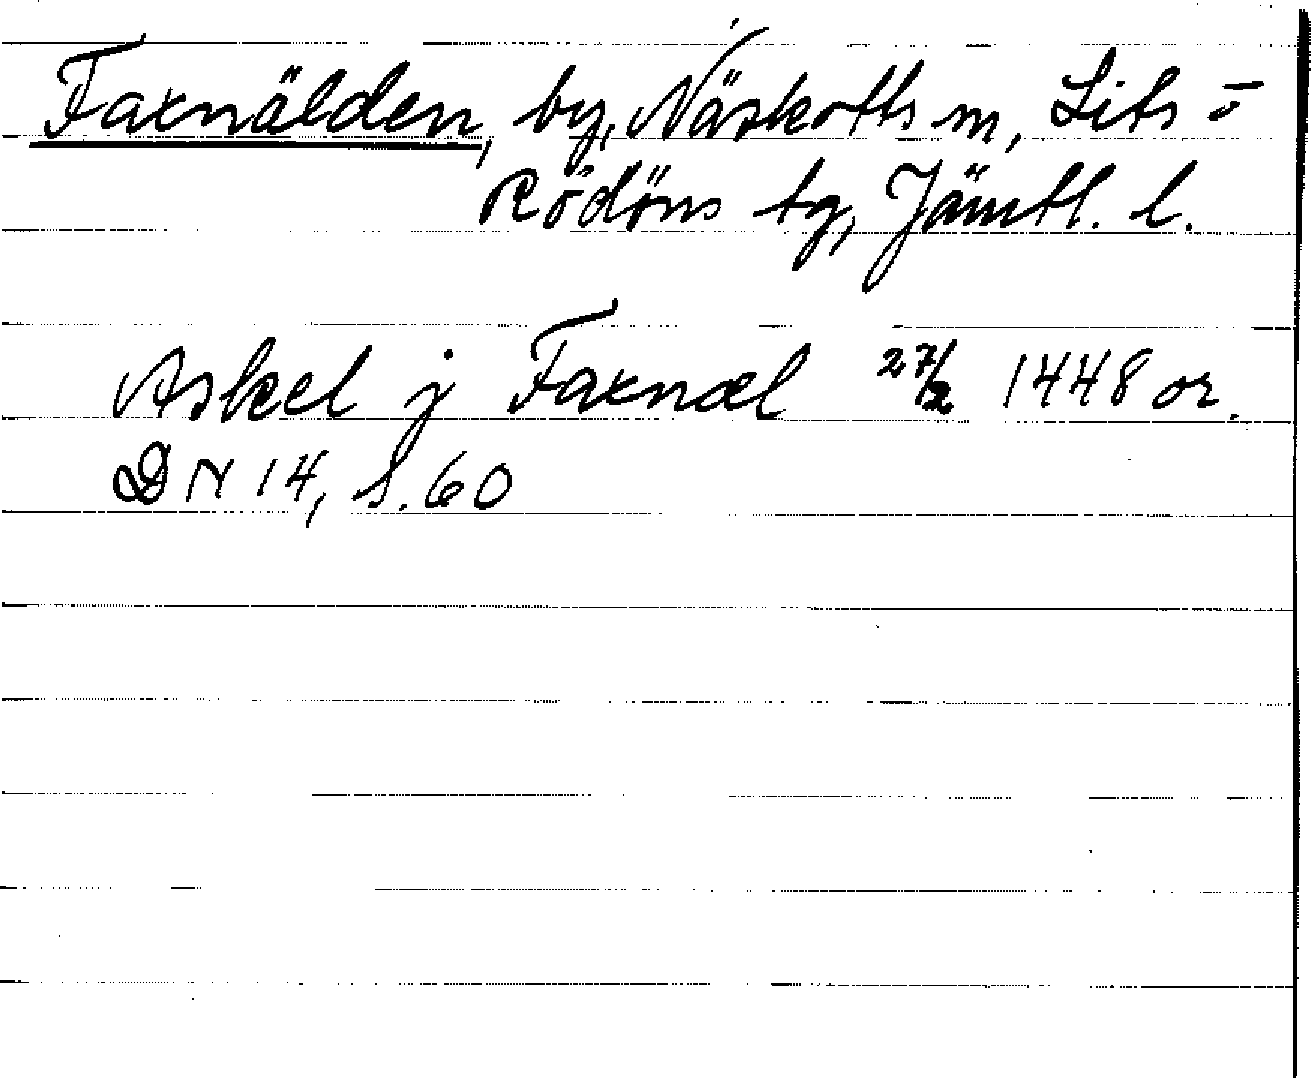 Faxnälden, by, Näskotts sn, Lits o
Rödöns tg, Jämtl. l.
Askel j Faxnæl 27/2 1448 or.
DN 14, s. 60